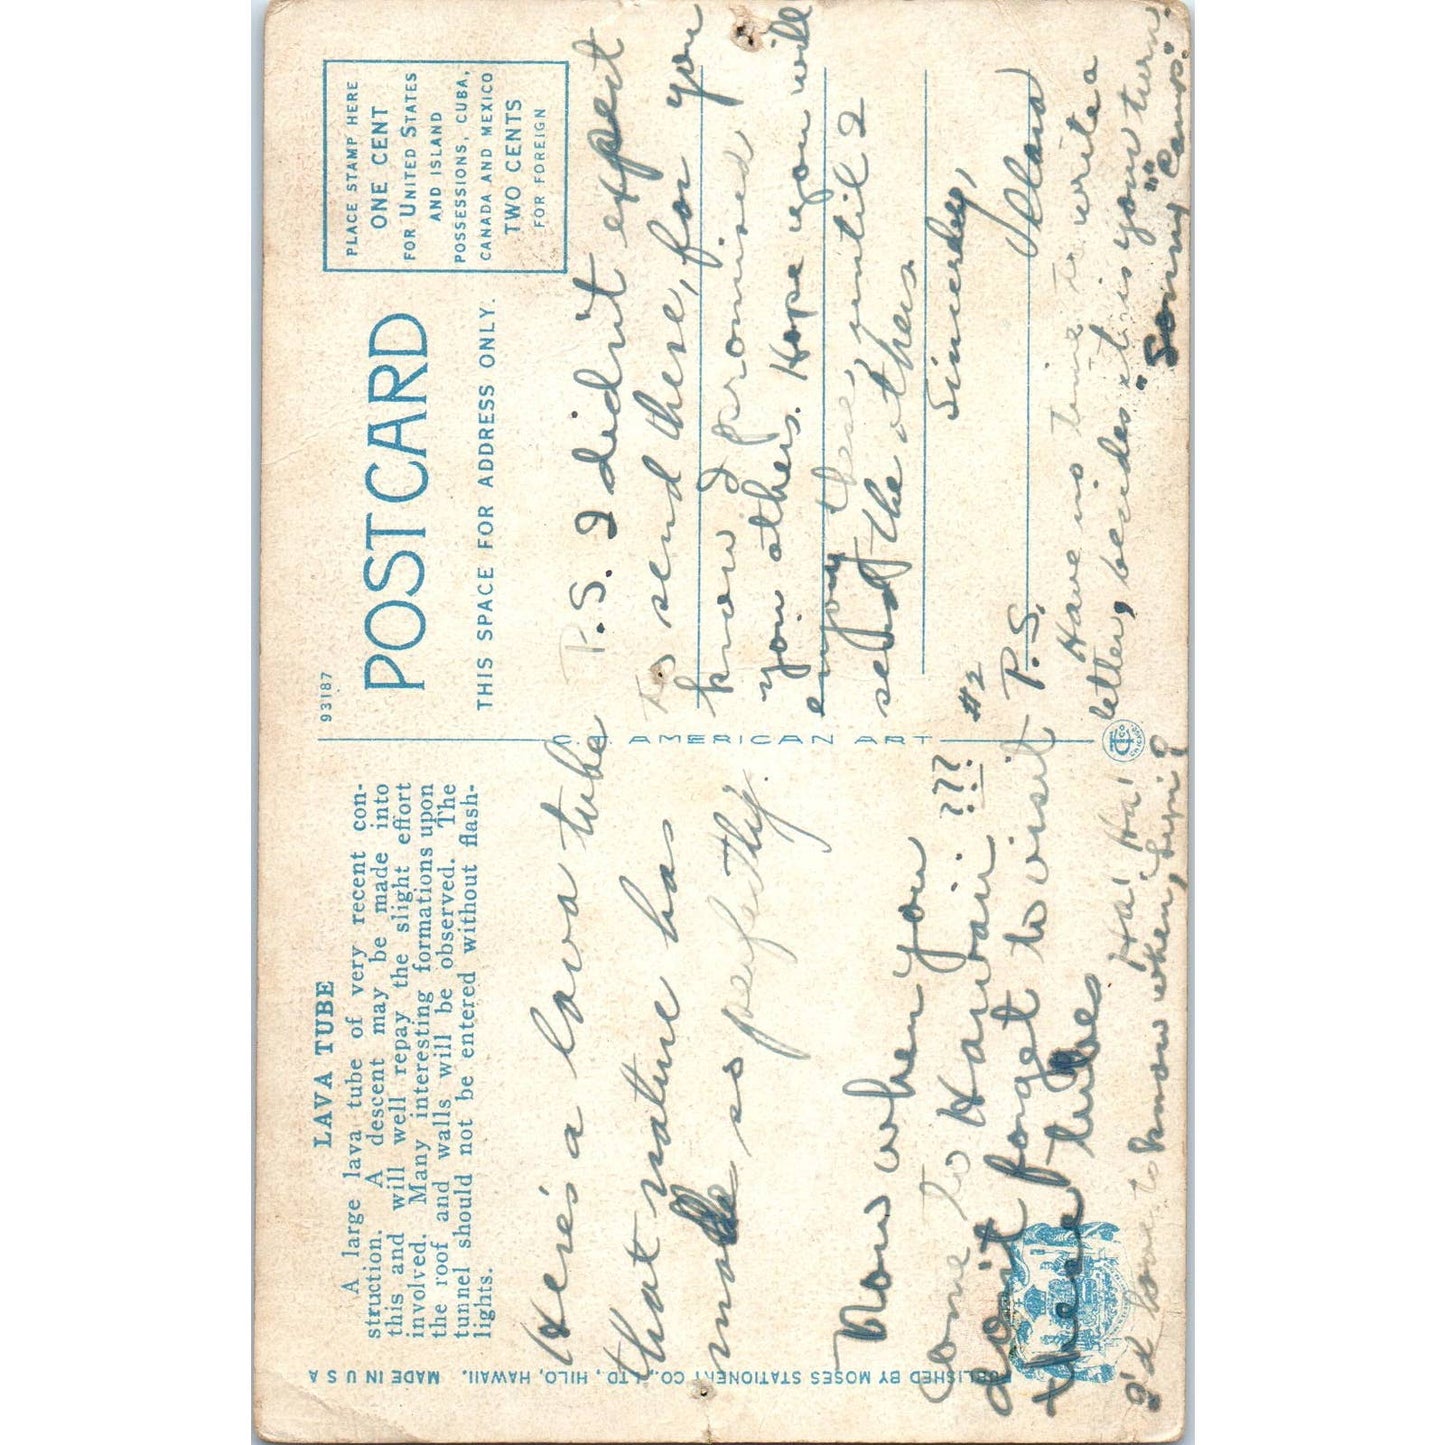 93187
POSTCARD
THIS SPACE FOR ADDRESS ONLY.
PLACE STAMP HERE
ONE CENT
FOR UNITED STATES
AND ISLAND
POSSESSIONS, CUBA,
CANADA AND MEXICO
TWO CENTS
FOR FOREIGN
LAVA TUBE
A large lava tube of very recent con-
struction. A descent may be made into
this and will well repay the slight effort
involved. Many interesting formations upon
the roof and walls will be observed. The
tunnel should not be entered without flash-
lights.
Here's a lava tube
that nature has
made so perfectly.
Now when you
come to Hawaii ???
don't forget to visit
these tubes
Ha! Ha!
I'd love to know when,
P.S. I didn't expect
to send these, for you
know I promised
you others. Hope you will
enjoy these, until I
send the others
Sincerely,
#2
P.S.
Have no time to write a
letter, besides it is your turn.
C.T. AMERICAN ART
PUBLISHED BY MOSES STATIONERY CO., LTD., HILO, HAWAII.
MADE IN U S A